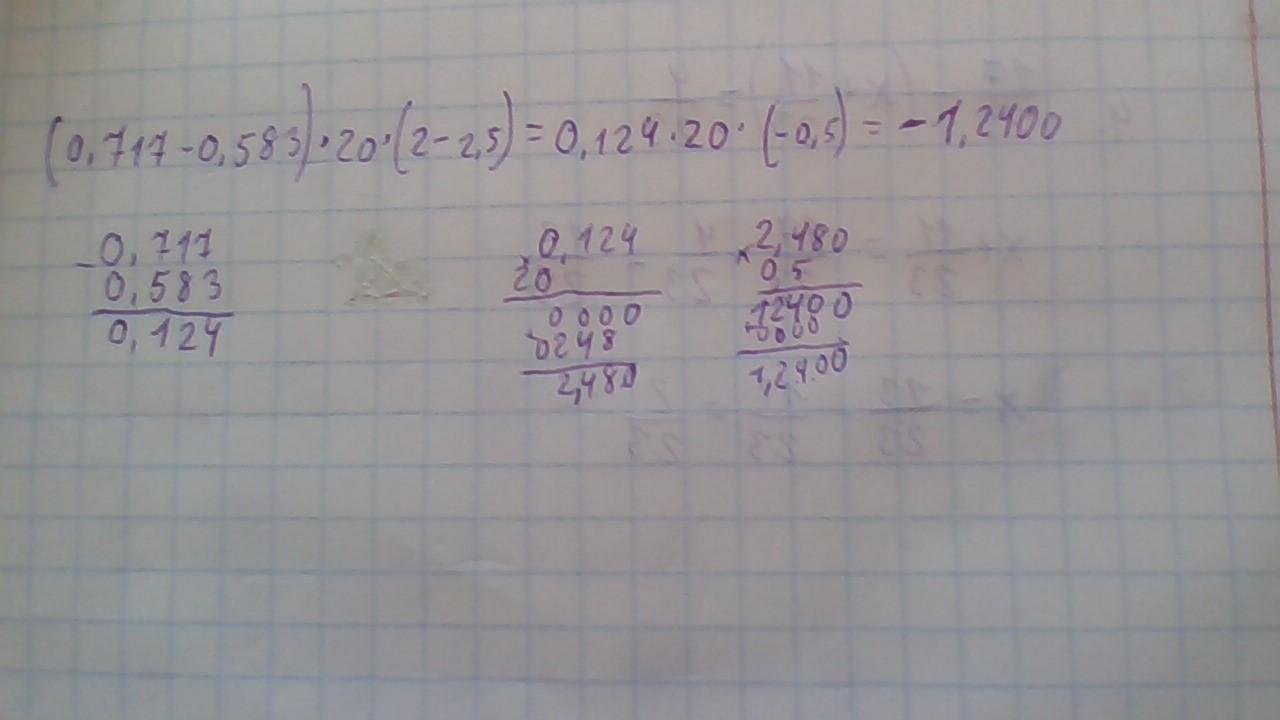 (0,717-0,583)·20·(2-2,5)=0,124·20·(-0,5)=-1,2400
-0,717
0,583
0,124
×0,124
20
0000
0248
2,480
×2,480
0,5
12400
0000
1,2400